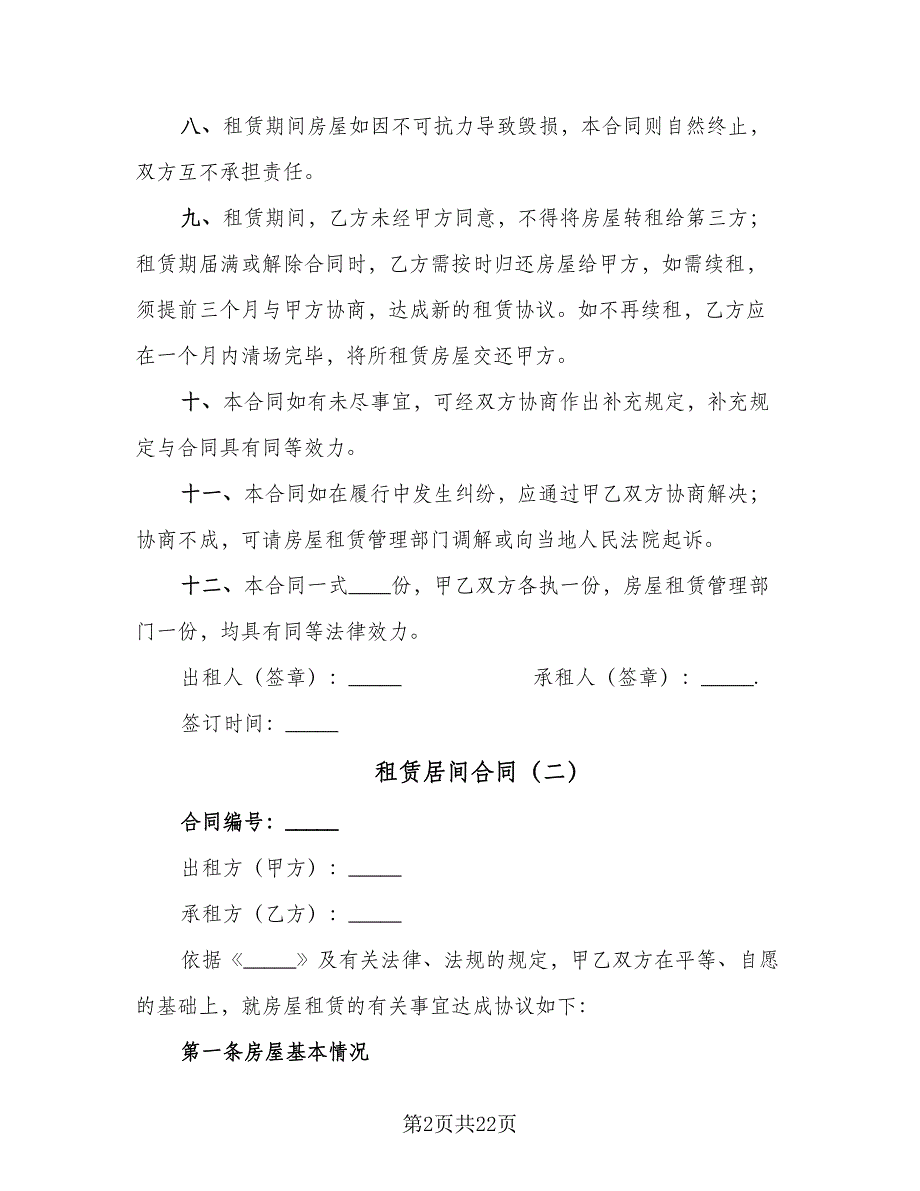 八、租赁期间房屋如因不可抗力导致毁损，本合同则自然终止，
双方互不承担责任。
九、租赁期间，乙方未经甲方同意，不得将房屋转租给第三方；
租赁期届满或解除合同时，乙方需按时归还房屋给甲方，如需续租，
须提前三个月与甲方协商，达成新的租赁协议。如不再续租，乙方应
在一个月内清场完毕，将所租赁房屋交还甲方。
十、本合同如有未尽事宜，可经双方协商作出补充规定，补充规
定与合同具有同等效力。
十一、本合同如在履行中发生纠纷，应通过甲乙双方协商解决；
协商不成，可请房屋租赁管理部门调解或向当地人民法院起诉。
十二、本合同一式____份，甲乙双方各执一份，房屋租赁管理部
门一份，均具有同等法律效力。
出租人（签章）：_____ 承租人（签章）：_____.
签订时间：_____
租赁居间合同（二）
合同编号：_____
出租方（甲方）：_____
承租方（乙方）：_____
依据《_____》及有关法律、法规的规定，甲乙双方在平等、自愿
的基础上，就房屋租赁的有关事宜达成协议如下：
第一条房屋基本情况
第2页共22页